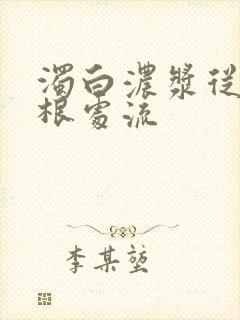 濁白濃漿從
根處流
李某堃